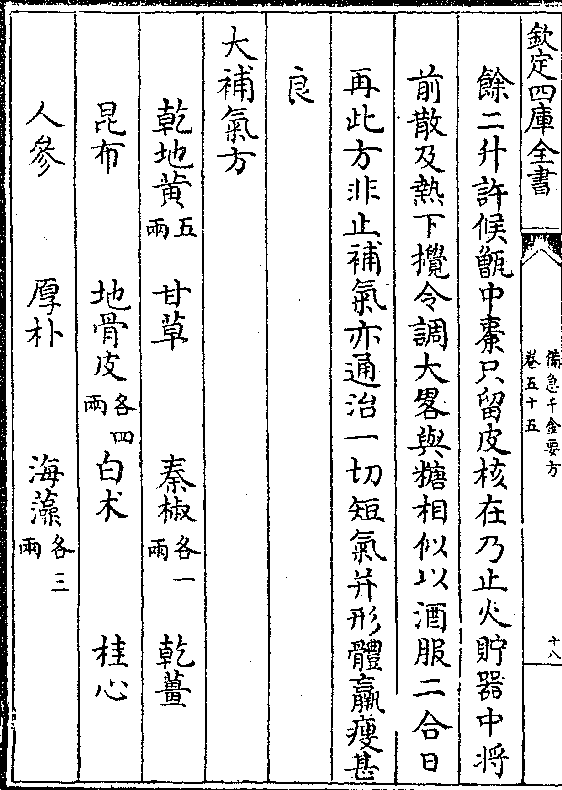 欽定四庫全書
備急千金要方
卷五十五
十八
餘二升許候甑中棗只留皮核在乃止火貯器中将
前散及熱下攪令調大畧與糖相似以酒服二合日
再此方非止補氣亦通治一切短氣并形體羸瘦甚
良
大補氣方
乾地黄五兩 甘草 秦椒各一兩 乾薑
昆布 地骨皮各四兩 白术 桂心
人參 厚朴 海藻各三兩